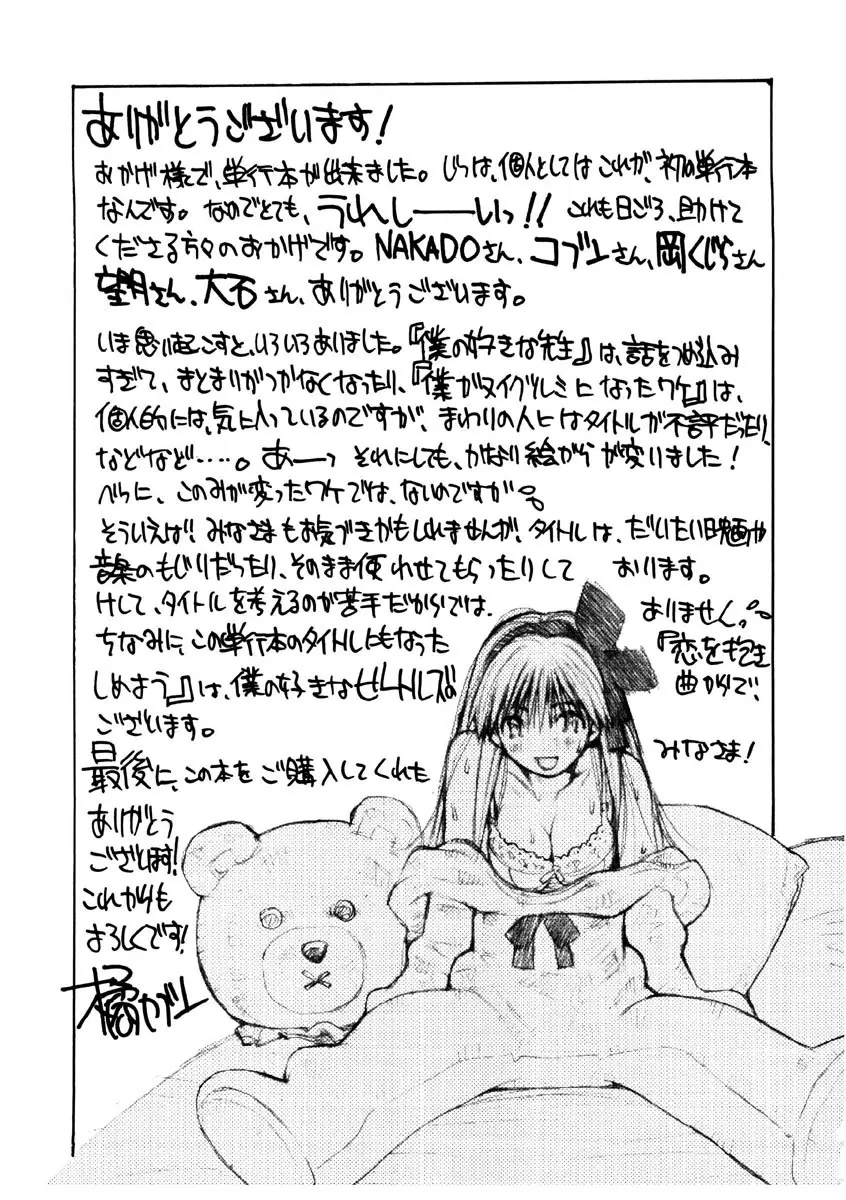 ありがとうございます！
おかげ様で、単行本が出来ました。じつは、個人としてはこれが、初の単行本
なんです。なのでとても、うれしーーいっ!! これも日ごろ、助けて
くださる方々のおかげです。NAKADOさん、コブンさん、岡くじらさん
望月さん、大石さん、ありがとうございます。
いま思い起こすと、いろいろありました。『僕の好きな先生』は、話をつめ込み
すぎて、まとまりがつかなくなったり、『僕がヌイグルミになったワケ』は、
個人的には、気に入っているのですが、まわりの人にはタイトルが不評だったり、
などなど‥‥。あーっ それにしても、かなり絵がらが変りました！
べつに、このみが変ったワケでは、ないのですが。
そういえば！みなさまもお気づきかもしれませんが、タイトルは、だいたい映画や
音楽のもじりだったり、そのまま使わせてもらったりして おります。
けして、タイトルを考えるのが苦手だからでは、 ありませんっ。
ちなみに、この単行本のタイトルにもなった 『恋を抱き
しめよう』は、僕の好きなビートルズの 曲からで、
ございます。
最後に、この本をご購入してくれた みなさま！
ありがとう
ございます！
これからも
よろしくです！
橘